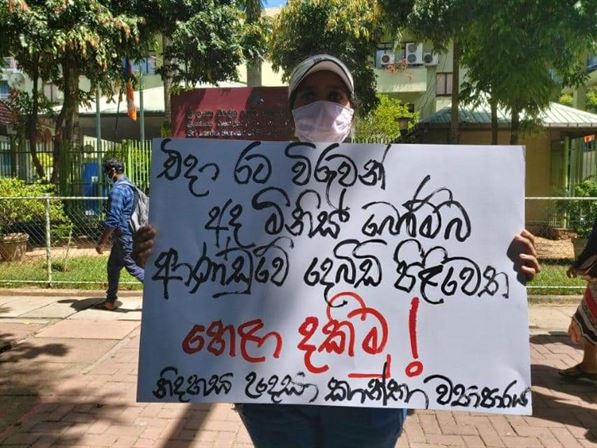 එදා රට විරුවන්
අද මිනිස් බෝම්බ
ආණ්ඩුවේ දෙබිඩි පිළිවෙත
හෙළා දකිමු !
නිදහස උදෙසා කාන්තා ව්‍යාපාරය